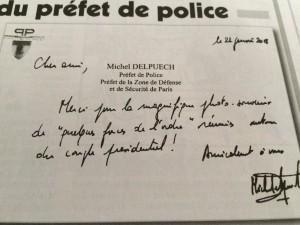 du préfet de police
le 22 janvier 2018
Cher ami,
Michel DELPUECH
Préfet de Police
Préfet de la Zone de Défense
et de Sécurité de Paris
Merci pour la magnifique photo-souvenir
de "quelques forces de l'ordre" réunies autour
du couple présidentiel !
Amicalement à vous